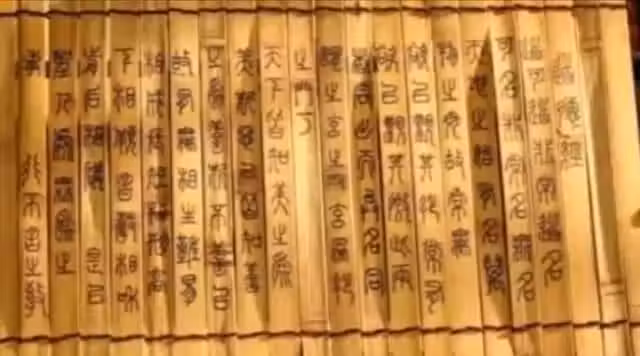 道德經
道可道非常道名
可名非常名無名
天地之始有名萬
物之母故常無
欲以觀其妙常有
欲以觀其徼此兩
者同出而異名同
謂之玄之又玄眾妙
之門
天下皆知美之為
美斯惡已皆知善
之為善斯不善已
故有無相生難易
相成長短相形高
下相傾音聲相和
前后相隨 是以
聖人處無為之
事 行不言之教